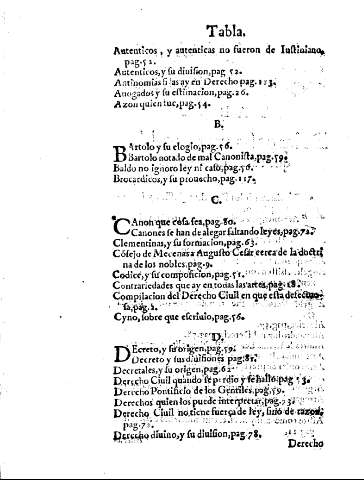 Tabla.
Autenticos, y autenticas no fueron de Iustiniano,
pag.52.
Autenticos, y su diuision, pag 52.
Antinomias si las ay en Derecho pag.113.
Auogados y su estimacion, pag.26.
Azon quien fue, pag.54.
B.
BArtolo y su elogio, pag.56.
Bartolo notado de mal Canonista, pag.59.
Baldo no ignoro ley ni caso, pag.56.
Brocardicos, y su prouecho, pag.117.
C.
CAnon que cosa sea, pag.80.
Canones se han de alegar faltando leyes, pag.72.
Clementinas, y su formacion, pag.63.
Cósejo de Mecenas a Augusto Cesar cerca de la doctri
na de los nobles. pag.9.
Codice, y su composicion, pag.51.
Contrariedades que ay en todas las artes, pag.18.
Compilacion del Derecho Ciuil en que esta defectuo-
sa, pag.2.
Cyno, sobre que escriuio, pag.56.
D.
DEcreto, y su origen, pag.59.
Decreto y sus diuisiones pag.81.
Decretales, y su origen, pag.62
Derecho Ciuil quando se perdio y se hallò, pag 53.
Derecho Pontificio de los Gentiles, pag.59.
Derechos quien los puede interpretar, pag.73.
Derecho Ciuil no tiene fuerça de ley, sino de razon,
pag.72.
Derecho diuino, y su diuision, pag.78.
Derecho